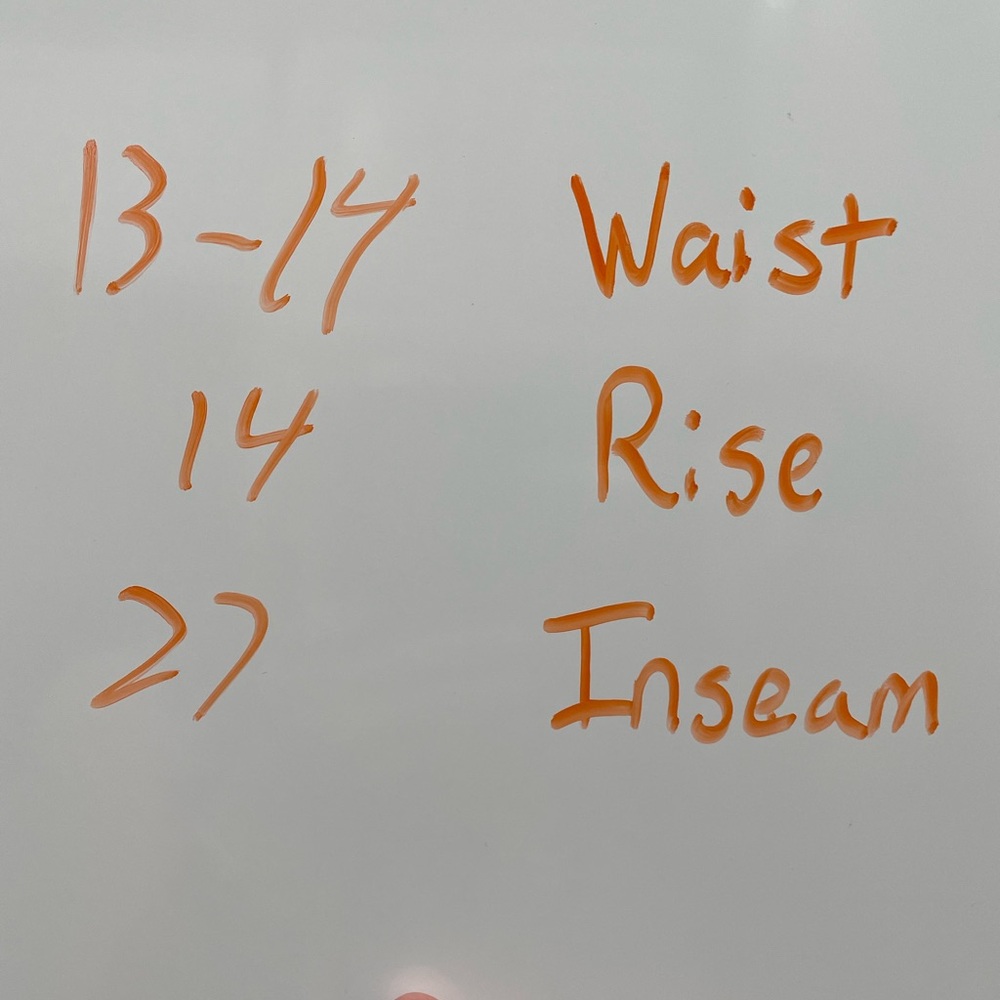 13-14 Waist
14 Rise
27 Inseam